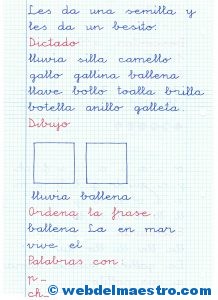 Les da una semilla y
les da un besito.
Dictado
lluvia silla camello
gallo gallina ballena
llave bollo toalla brilla
botella anillo galleta.
Dibujo
lluvia ballena
Ordena la frase.
ballena La en mar
vive el
Palabras con:
p_
ch_
© webdelmaestro.com